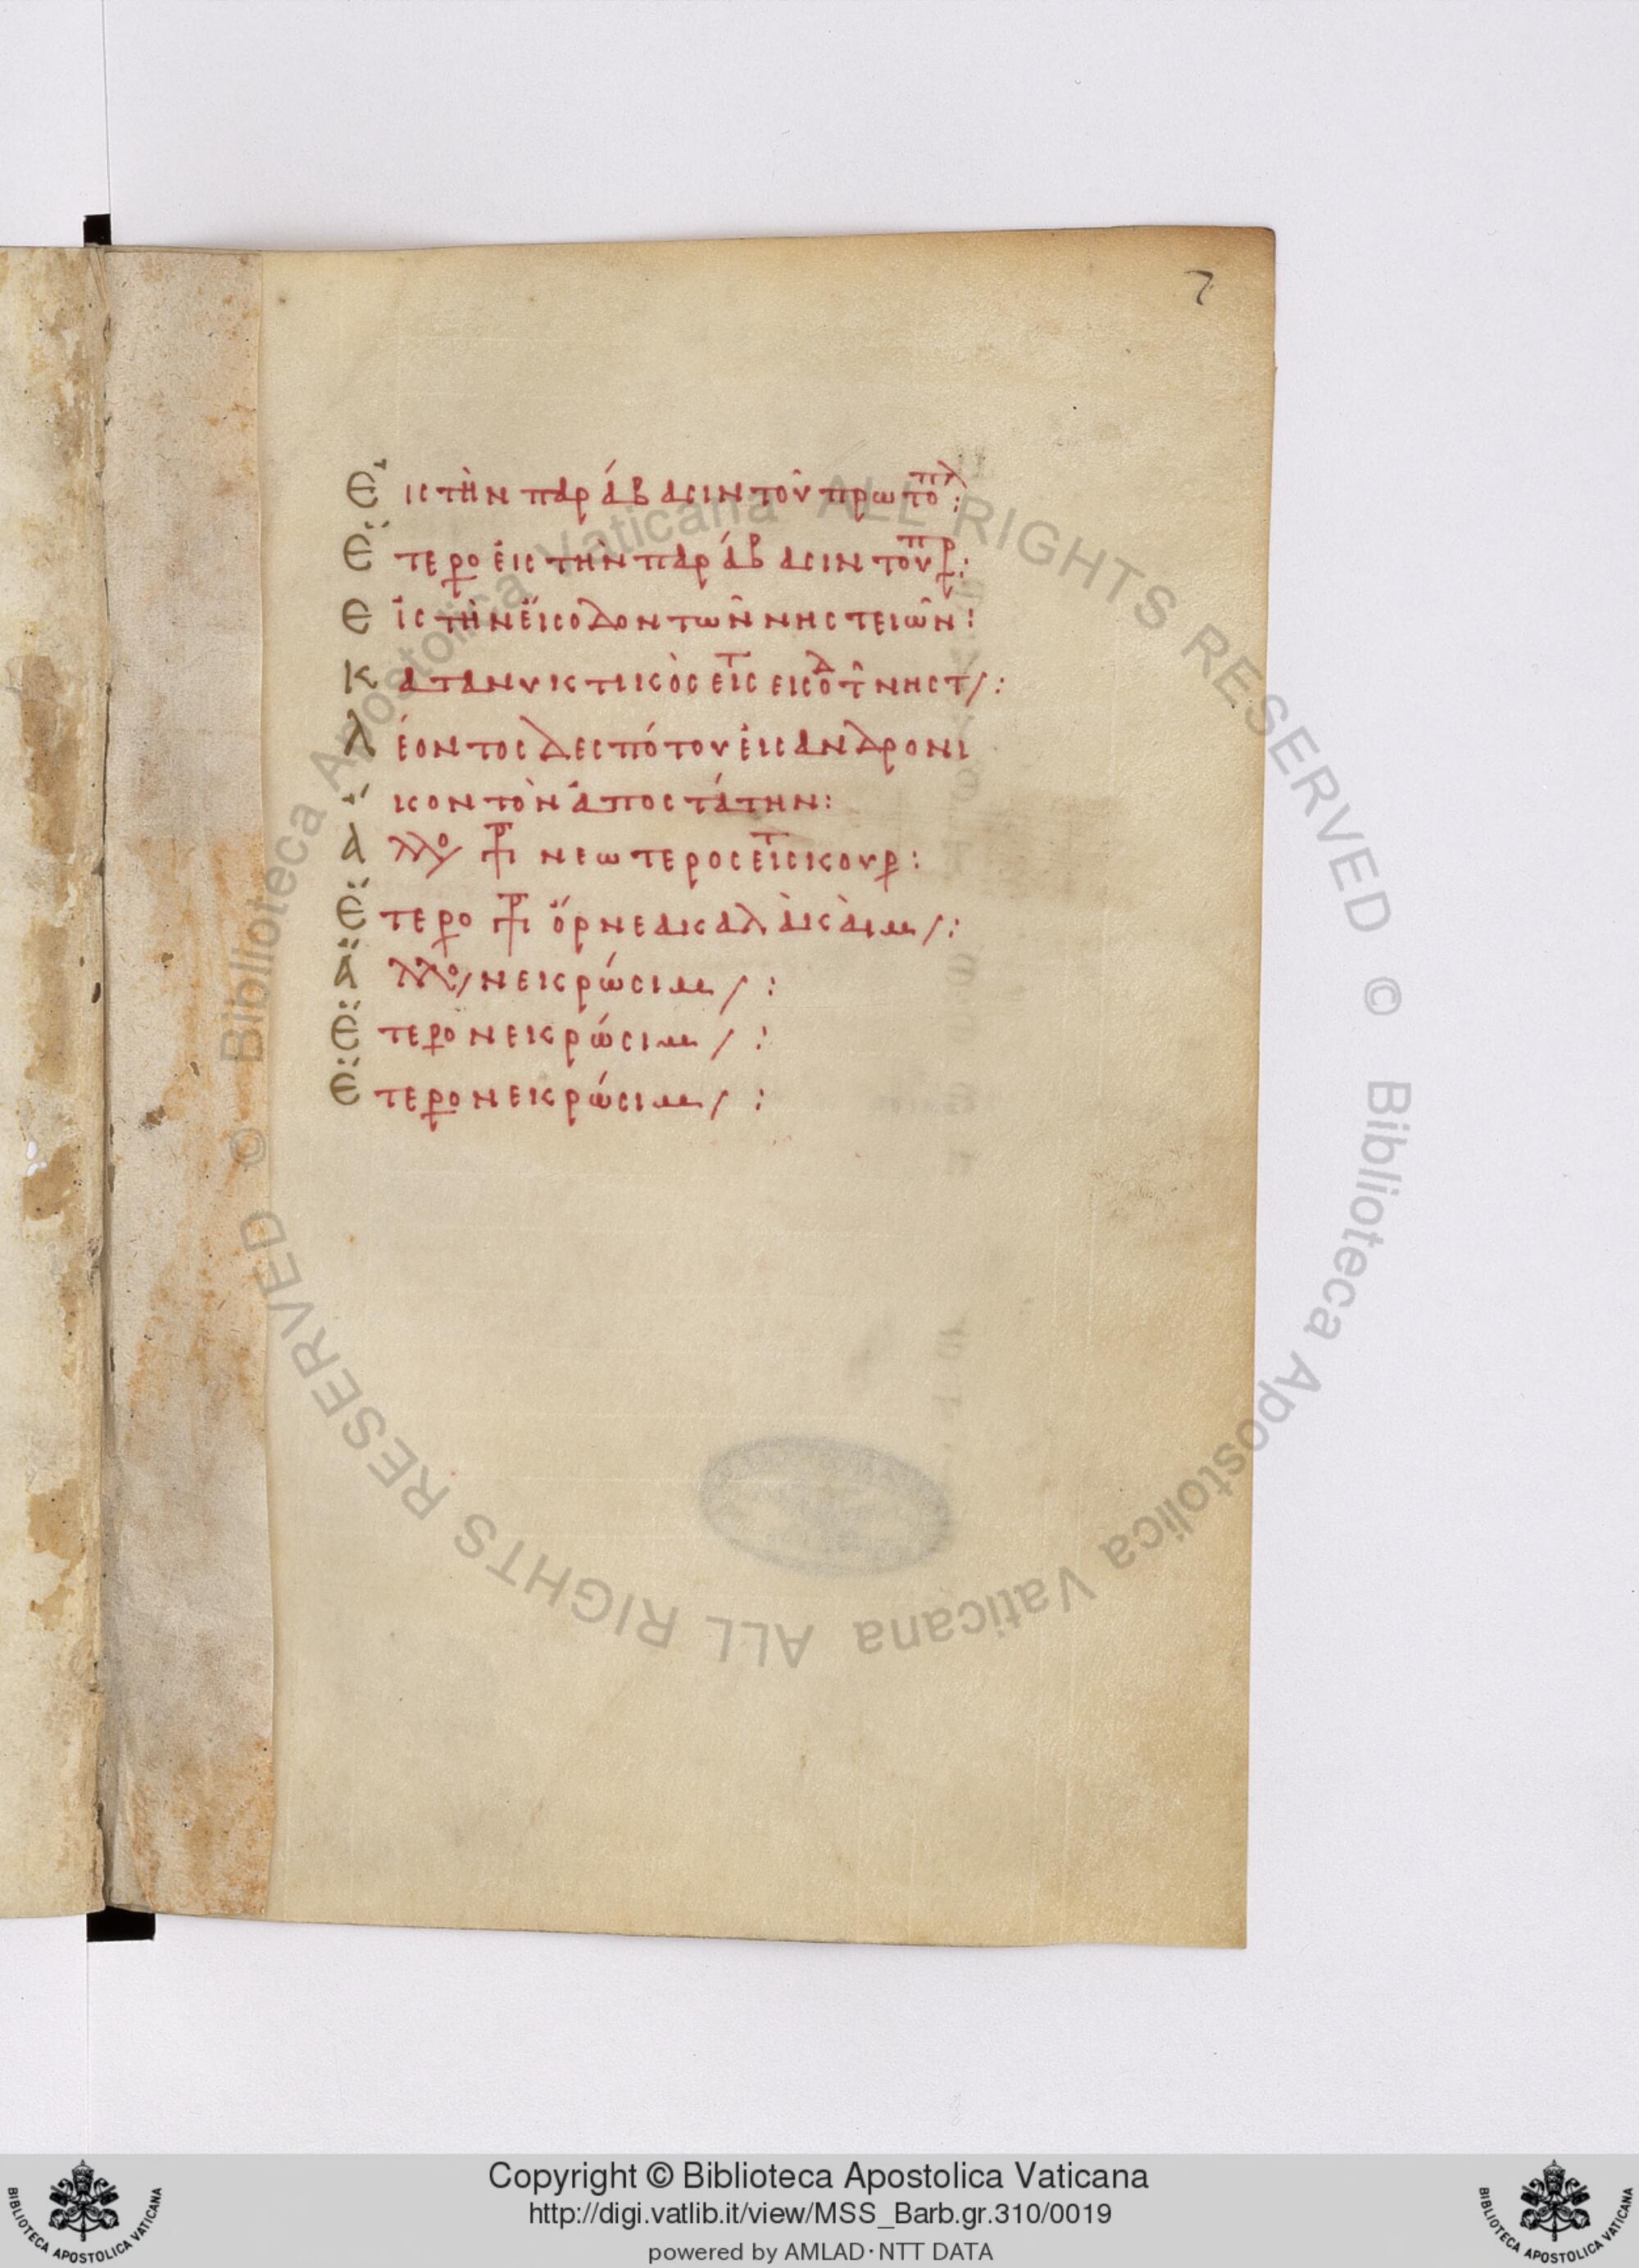 7
Εἰς τὴν παράβασιν τοῦ πρωτοπλ:
Ἕτερο εἰς τὴν παράβασιν τοῦ πρ:
Εἰς τὴν εἴσοδον τῶν νηστειῶν:
Κατανυκτικὸς εἰς τ εισοδ τ νηστ/:
Λέοντος δεσπότου εἰς ανδρονι
κον τὸν ἀποστάτην:
Αλλο νεωτερος εἰς τ κουρ:
Ἕτερο ὄρνεα καλὰ κὰιμ/:
Ἄλλο/ νεκρώσιμ/:
Ἕτερο νεκρώσιμ/:
Ἕτερο νεκρώσιμ/:
© Biblioteca Apostolica Vaticana ALL RIGHTS RESERVED © Biblioteca Apostolica Vaticana ALL RIGHTS RESERVED
BIBLIOTECA APOSTOLICA VATICANA
Copyright © Biblioteca Apostolica Vaticana
http://digi.vatlib.it/view/MSS_Barb.gr.310/0019
powered by AMLAD·NTT DATA
BIBLIOTECA APOSTOLICA VATICANA